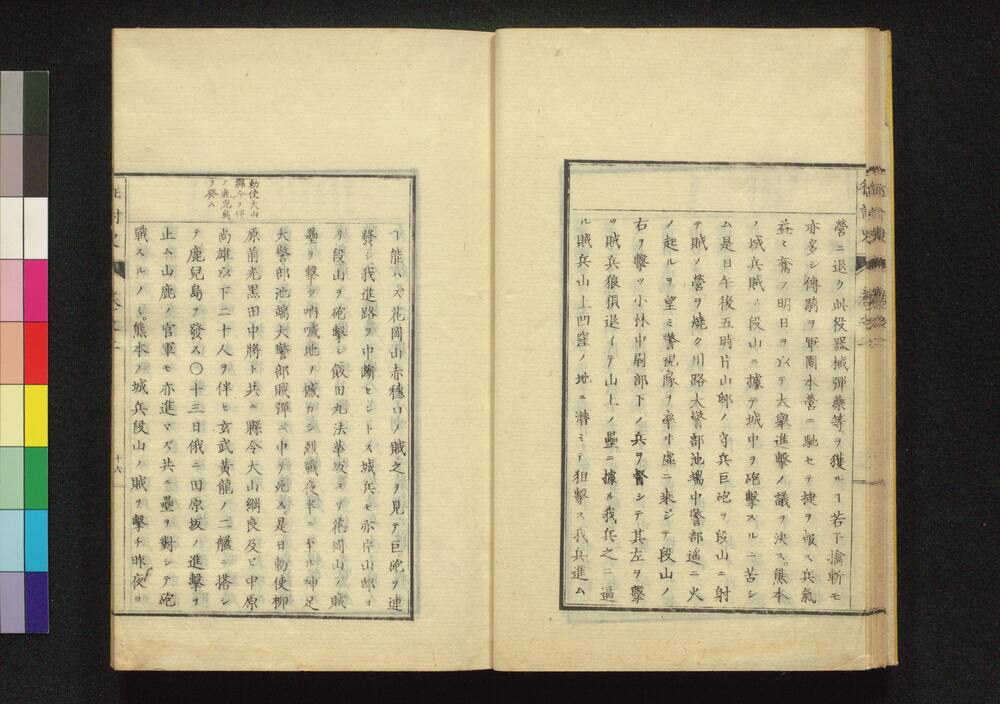 營ニ退ク此役器械彈藥等ヲ獲ルヿ若干擒斬モ
亦多シ傳騎ヲ軍團本營ニ馳セテ捷ヲ報ス兵氣
益々奮フ明日ヲ以テ大擧進擊ノ議ヲ決ス。熊本
ノ城兵賊ノ段山ニ據テ城中ヲ砲擊スルニ苦シ
ム是日午後五時片山邸ノ守兵巨砲ヲ段山ニ射
テ賊ノ營ヲ燒ク川路大警部池端中警部遙ニ火
ノ起ルヲ望ミ警視隊ヲ率ヰ虛ニ乘ジテ段山ノ
右ヲ擊ツ小林中尉部下ノ兵ヲ督シテ其左ヲ擊
ツ賊兵狼狽退イテ山上ノ壘ニ據ル我兵之ニ逼
ル賊兵山上凹窪ノ地ニ潛ミテ狙擊ス我兵進ム
勅使大山
縣令ヲ伴
ヒ鹿兒島
ヲ發ス
ヿ能ハズ花岡山赤穗口ノ賊之ヲ見テ巨砲ヲ連
發シ我進路ヲ中斷セントス城兵モ亦片山邸ヨ
リ段山ヲ砲擊シ飯田丸法華坂ヨリ花岡山ノ賊
壘ヲ擊ツ吶喊地ヲ撼カシ烈戰夜半ニ至ル神足
大警部池端大警部賊彈ニ中テ死ス是日勅使柳
原前光黑田中將ト共ニ縣令大山綱良及ビ中原
尚雄以下二十人ヲ伴ヒ玄武黃龍ノ二艦ニ搭シ
テ鹿兒島ヲ發ス〇十三日俄ニ田原坂ノ進擊ヲ
止ム山鹿ノ官軍モ亦進マズ共ニ壘ヲ對シテ砲
戰スルノミ。熊本ノ城兵段山ノ賊ヲ擊チ昨夜ヨ
十六